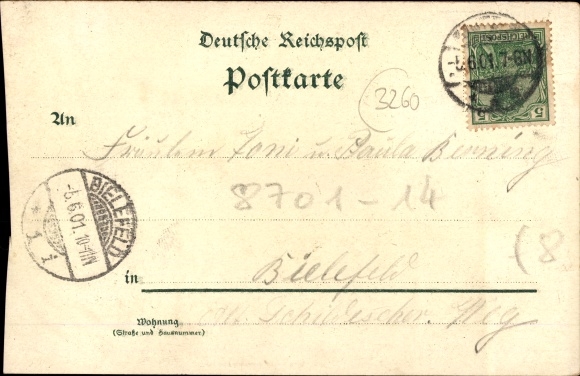 Deutsche Reichspost
Postkarte
REICHSPOST
5
5
6.01.7-8N.
3260
An
Fräulein Toni u. Paula Berning
8701-14
BIELEFELD
-6.6.01.10-11N
1
1
(8
in Bielefeld
Wohnung
(Straße und Hausnummer)
Weg